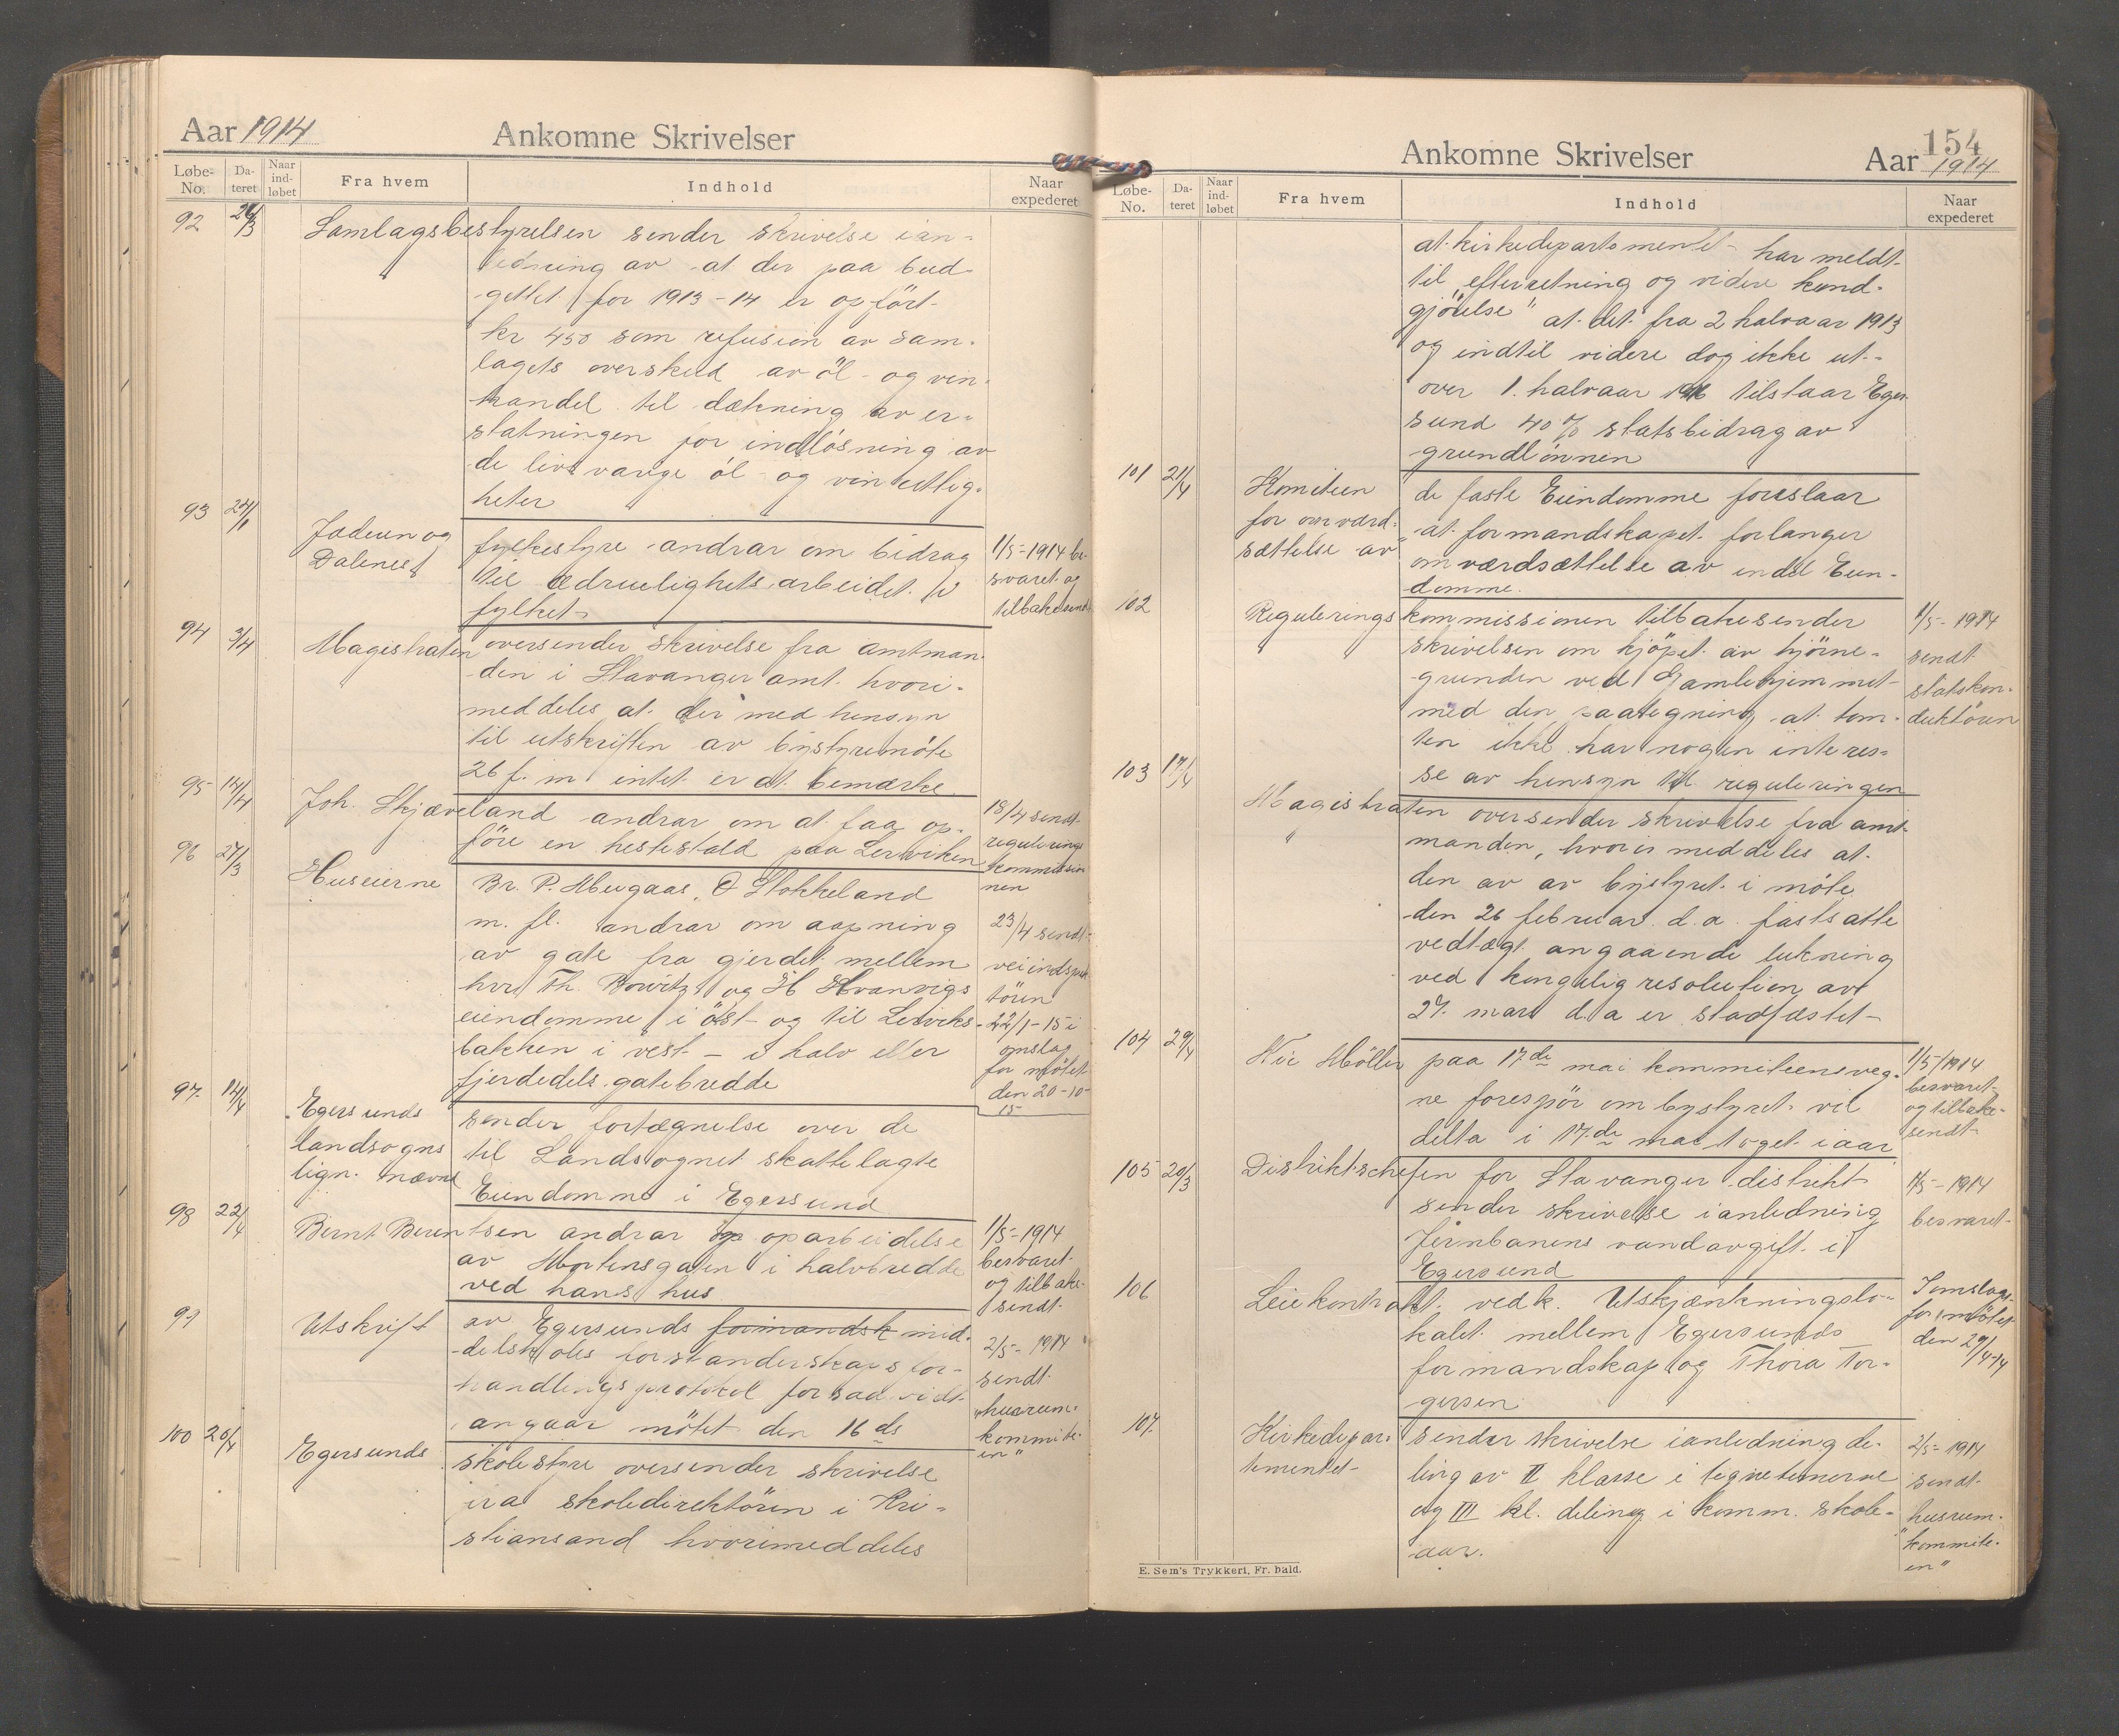 Aar 1914
Ankomne Skrivelser
Løbe-No.
Da-teret
Naar ind-løbet
Fra hvem
Indhold
Naar expederet
92 26/3 Samlagsbestyrelsen sender skrivelse i an-
ledning av at der paa bud-
gettet for 1913-14 er opført
kr 450 som refusion av sam-
lagets overskud av øl- og vin-
handel til dækning av er-
statningen for indløsning av
de livsvarige øl- og vinrettig-
heter
93 24/1 Jæderen og Dalenes fylkestyre andrar om bidrag
til ædruelighetsarbeidet i
fylket
1/5-1914 be-
svaret og
tilbakesendt
94 3/4 Magistraten oversender skrivelse fra amtman-
den i Stavanger amt hvori-
meddeles at der med hensyn
til utskriften av bystyremøte
26 f. m. intet er at bemærke
95 14/4 Joh. Skjæveland andrar om at faa op-
føre en hestestald paa Lerviken
18/4 sendt
regulerings
kommissio
nen
96 27/3 Huseierne Br. P. Meugaas, O Stokkeland
m. fl. andrar om aapning
av gate fra gjerdet mellem
hrr Th. og H Hvanvigs
eiendomme i øst og til Lerviks-
bakken i vest - i halv eller
fjerdedels gatebredde
23/4 sendt
veiinspek
tøren
22/1-15 i
omslag
for møtet
den 20-10-
15
97. 14/4 Egersunds landsogns lign. nævnd
sender fortægnelse over de
til Landsognet skattelagte
Eiendomme i Egersund
98 22/4 Bernt Berentsen andrar op oparbeidelse
av Mortensgaten i halvbredde
ved hans hus
1/5-1914
besvaret
og tilbake-
sendt
99 Utskrift av Egersunds formandsk mid-
delskoles forstanderskaps for-
handlingsprotokol forsaavidt
angaar møtet den 16 ds
2/5-1914
sendt
"husrum-
kommite-
en"
100 20/4 Egersunds skolestyre oversender skrivelse
fra skoledirektøren i Kri-
stiansand hvorimeddeles
154
Ankomne Skrivelser
Aar 1914
Løbe-No.
Da-teret
Naar ind-løbet
Fra hvem
Indhold
Naar expederet
at kirkedepartementet har meldt
til "efterretning og videre kund-
gjørelse" at det fra 2 halvaar 1913
og indtil videre dog ikke ut-
over 1. halvaar 1916 tilstaar Eger-
sund 40 % statsbidrag av
grundlønnen
101 21/4 Komiteen for omværd-sættelse av
de faste Eiendomme foreslaar
at formandskapet forlanger
omværdsættelse av endel Eien-
domme.
102 Reguleringskommissionen tilbakesender
skrivelsen om kjøpet av hjørne-
grunden ved Gamlehjemmet
med den paategning at tom-
ten ikke har nogen interes-
se av hensyn til reguleringen
1/5-1914
sendt
statskon-
duktøren
103 17/4 Magistraten oversender skrivelse fra amt-
manden, hvori meddeles at
den av av bystyret i møte
den 26 februar d. a. fastsatte
vedtægt angaaende lukning
ved kongelig resolution av
27. mars d. a er stadfæstet
104 29/4 Nic Møller paa 17de mai kommiteens veg-
ne forespør om bystyret vil
delta i 17.de mai toget i aar
1/5/1914
besvaret
og tilbake-
sendt
105 20/3 Distriktschefen for Stavanger distrikt
sender skrivelse i anledning
Jernbanens vandavgift i
Egersund
1/5-1914
besvaret
106 Leiekontrakt vedk. Utskjænkningslo-
kalet mellem Egersunds
formandskap og Thora Tor-
gersen
I omslag
for møtet
den 29/4-14
107. Kirkedepar-tementet
sender skrivelse i anledning de-
ling av II klasse i tegnetimerne
og III kl. deling i komm. skole-
aar.
2/5-1914
sendt
husrum-
"kommite-
en"
E. Sem's Trykkeri, Fr.hald.